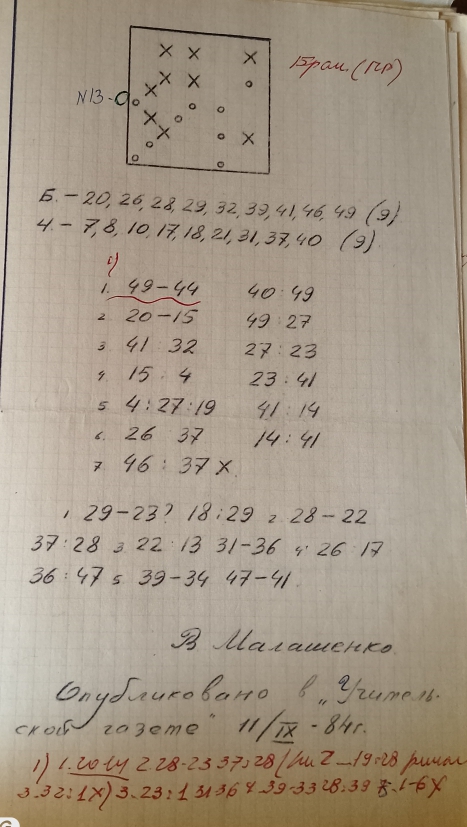 Бραз. (ПР)
N13-
Б. - 20, 26, 28, 29, 32, 39, 41, 46, 49 (9)
Ч. - 7, 8, 10, 17, 18, 21, 31, 37, 40 (9)
1)
1. 49-44 40:49
2 20-15 49:27
3 41:32 27:23
4 15:4 23:41
5 4:27:19 41:14
6. 26 37 14:41
7 46:37 X
1. 29-23? 18:29 2. 28-22
37:28 3. 22:13 31-36 4. 26:17
36:47 5. 39-34 47-41.
В Малашенко.
Опубликовано в „Учитель-
ской газете" 11/IX-84г.
1) 1.20-14 2.28-23 37:28 19:28
3.32:1X) 3.23:1 31-36 4.39-33 28:39 5.1-6X